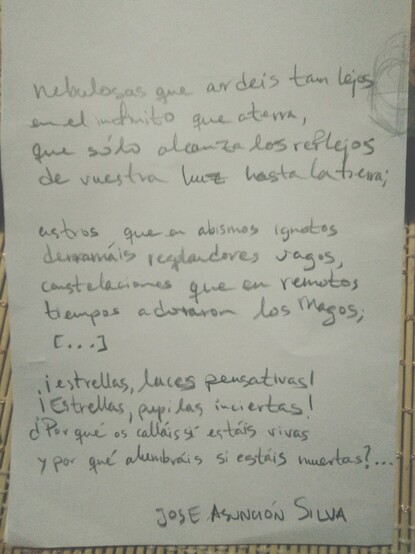 nebulosas que ardeis tan lejos
en el infinito que aterra,
que sólo alcanza los reflejos
de vuestra luz hasta la tierra;
astros que en abismos ignotos
derramáis resplandores vagos,
constelaciones que en remotos
tiempos adoraron los Magos;
[...]
¡estrellas, luces pensativas!
¡Estrellas, pupilas inciertas!
¿Por qué os calláis si estáis vivas
y por qué alumbráis si estáis muertas?...
JOSE ASUNCIÓN SILVA